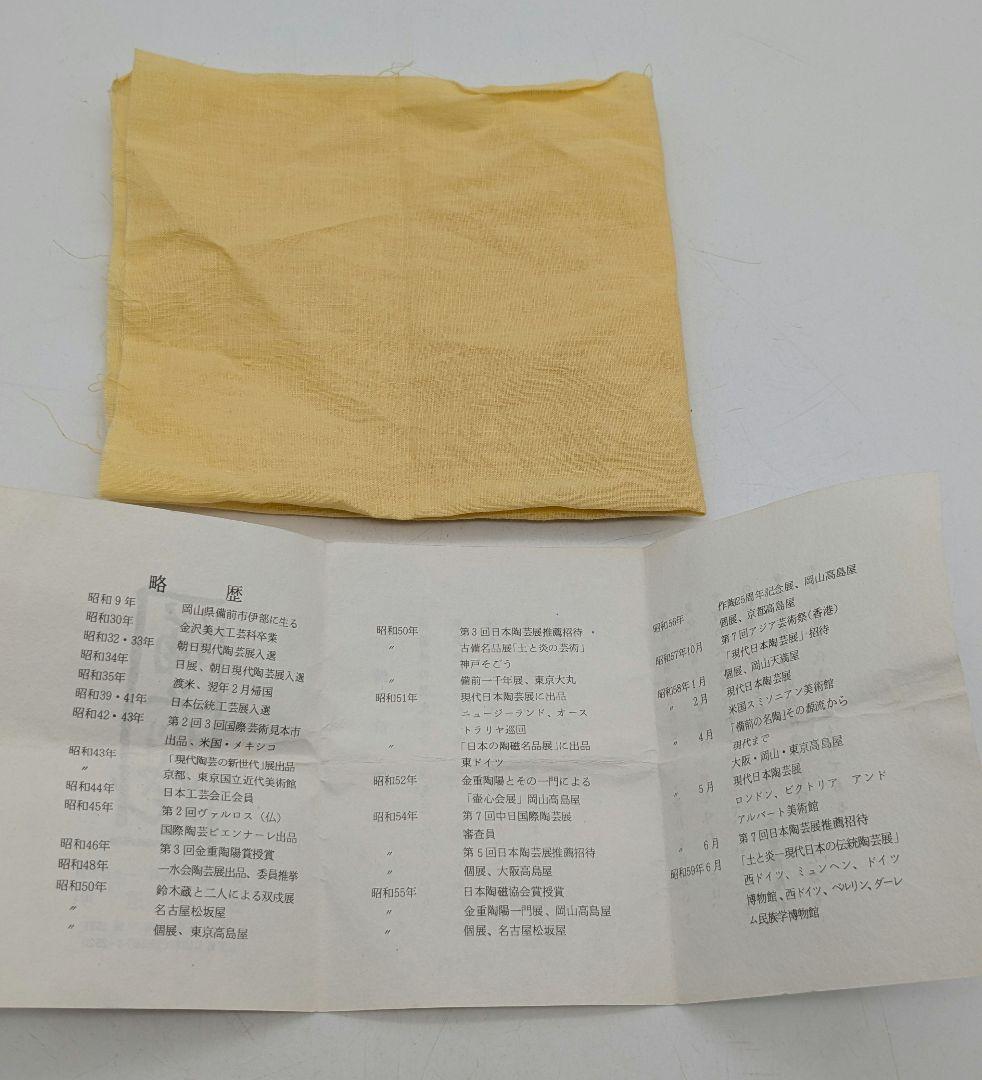 略歴
昭和9年 岡山県備前市伊部に生る
昭和30年 金沢美大工芸科卒業
昭和32・33年 朝日現代陶芸展入選
昭和34年 日展、朝日現代陶芸展入選
昭和35年 渡米、翌年2月帰国
昭和39・41年 日本伝統工芸展入選
昭和42・43年 第2回3回国際芸術見本市
出品、米国・メキシコ
昭和43年 「現代陶芸の新世代」展出品
〃 京都、東京国立近代美術館
昭和44年 日本工芸会正会員
昭和45年 第2回ヴァルロス（仏）
国際陶芸ビエンナーレ出品
昭和46年 第3回金重陶陽賞授賞
昭和48年 一水会陶芸展出品、委員推挙
昭和50年 鈴木蔵と二人による双戍展
〃 名古屋松坂屋
〃 個展、東京高島屋
昭和50年 第3回日本陶芸展推薦招待
〃 古備名品展「土と炎の芸術」
神戸そごう
〃 備前一千年展、東京大丸
昭和51年 現代日本陶芸展に出品
ニュージーランド、オース
トラリヤ巡回
〃 「日本の陶磁名品展」に出品
東ドイツ
昭和52年 金重陶陽とその一門による
「壷心会展」岡山高島屋
昭和54年 第7回中日国際陶芸展
審査員
〃 第5回日本陶芸展推薦招待
〃 個展、大阪高島屋
昭和55年 日本陶磁協会賞授賞
〃 金重陶陽一門展、岡山高島屋
〃 個展、名古屋松坂屋
昭和56年 作陶25周年記念展、岡山高島屋
個展、京都高島屋
昭和57年10月 第7回アジア芸術祭（香港）
「現代日本陶芸展」招待
昭和58年1月 個展、岡山天満屋
〃 2月 現代日本陶芸展
米国スミソニアン美術館
〃 4月 「備前の名陶」その源流から
現代まで
大阪・岡山・東京高島屋
〃 5月 現代日本陶芸展
ロンドン、ビクトリア アンド
アルバート美術館
〃 6月 第7回日本陶芸展推薦招待
昭和59年6月 「土と炎―現代日本の伝統陶芸展」
西ドイツ、ミュンヘン、ドイツ
博物館、西ドイツ、ベルリン、ダーレ
ム民族学博物館